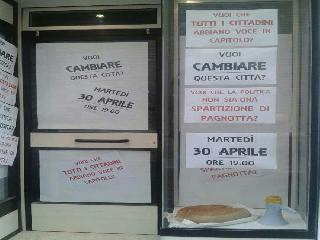 VUOI
CAMBIARE
QUESTA CITTA?
MARTEDÌ
30 APRILE
ORE 19.00
VUOI CHE
TUTTI I CITTADINI
ABBIANO VOCE IN
CAPITOLO?
VUOI CHE
TUTTI I CITTADINI
ABBIANO VOCE IN
CAPITOLO?
VUOI
CAMBIARE
QUESTA CITTA?
VUOI CHE LA POLITICA
NON SIA UNA
SPARTIZIONE DI
PAGNOTTA?
MARTEDÌ
30 APRILE
ORE 19.00
SPARTIZIONE DI
PAGNOTTA?